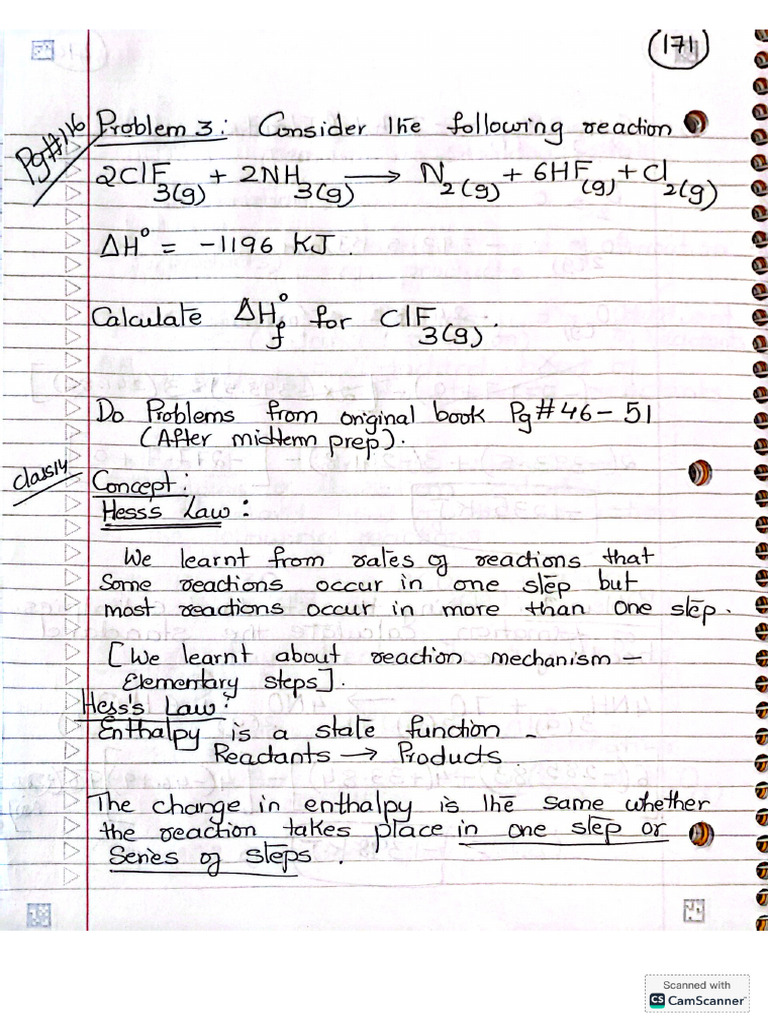 171
Pg#116
Problem 3: Consider the following reaction
2ClF3(g) + 2NH3(g) → N2(g) + 6HF(g) + Cl2(g)
ΔH° = -1196 KJ.
Calculate ΔH°f for ClF3(g).
Do Problems from original book Pg# 46-51
(After midterm prep).
class14
Concept:
Hess's Law:
We learnt from rates of reactions that
Some reactions occur in one step but
most reactions occur in more than one step.
[We learnt about reaction mechanism –
Elementary steps].
Hess's Law:
Enthalpy is a state function –
Reactants → Products.
The change in enthalpy is the same whether
the reaction takes place in one step or
Series of steps.
Scanned with
CS CamScanner